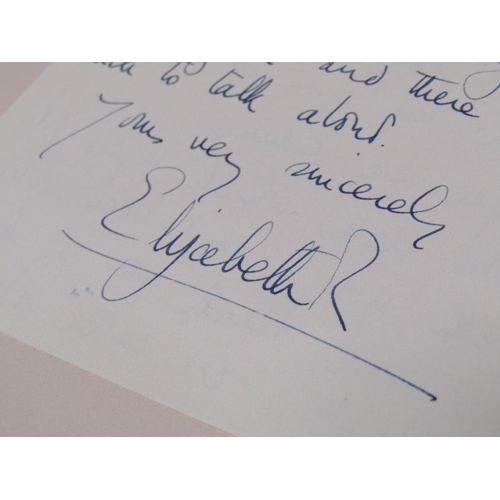 and there
to talk about.
Yours very sincerely
Elizabeth R